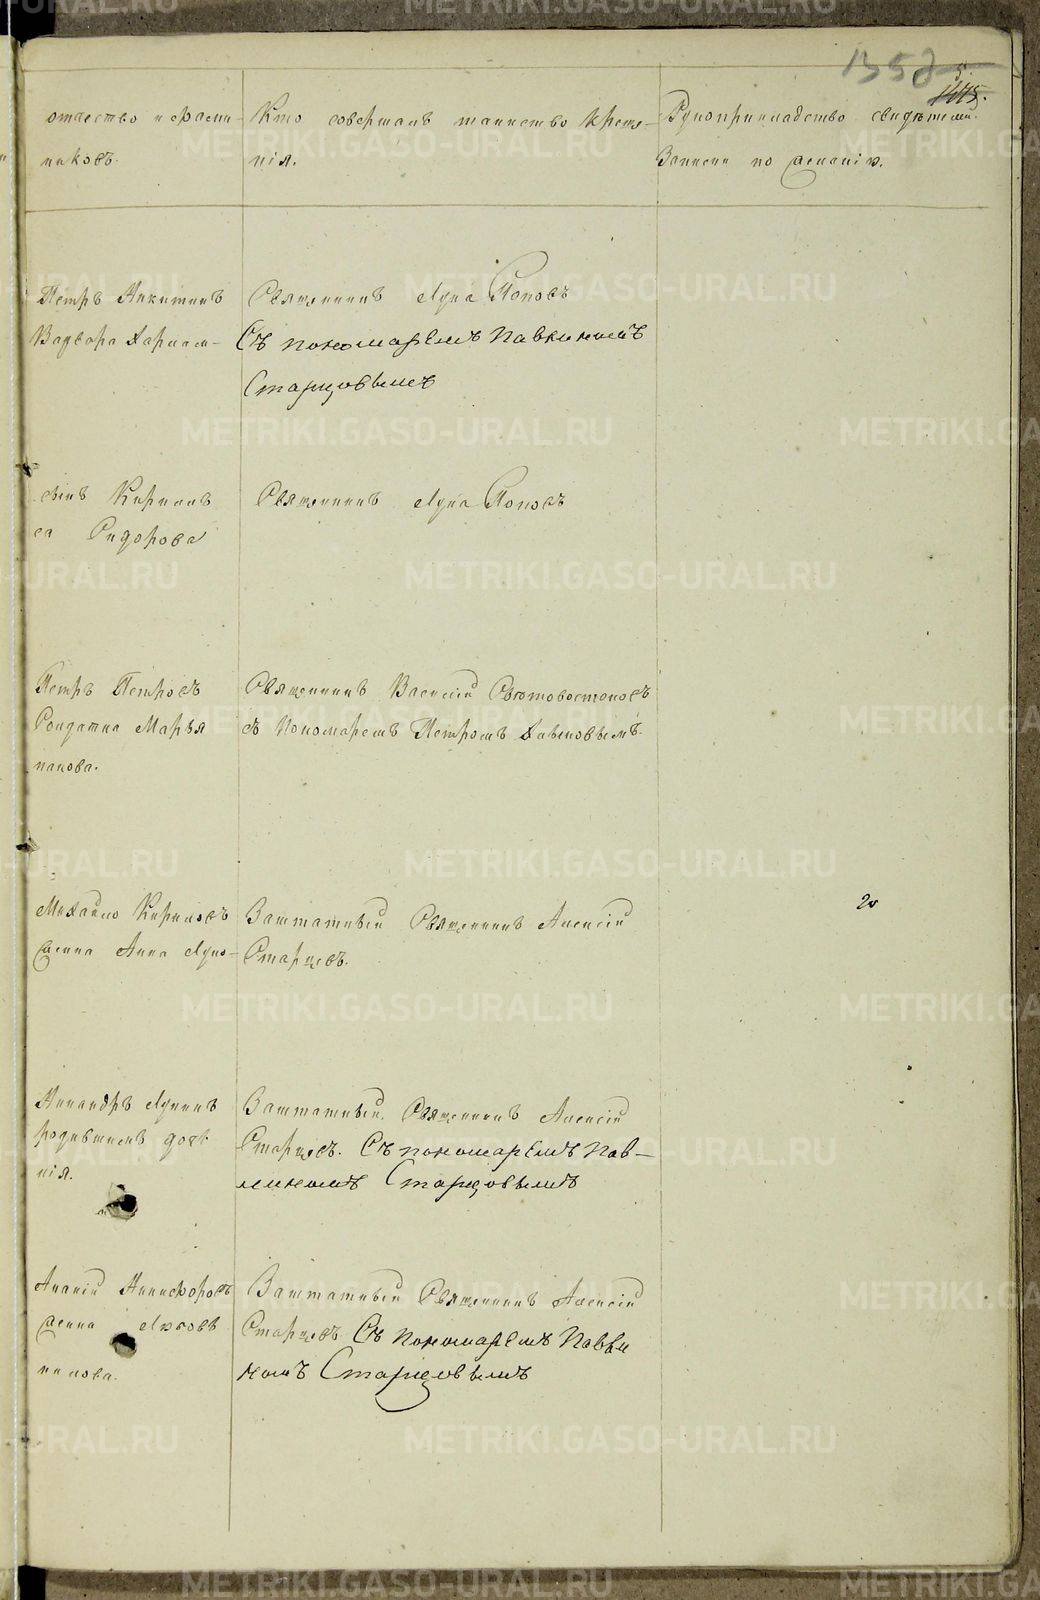 1353
5.
1475.
отчество и фами-
никовъ.
Кто совершалъ таинство креще-
нія.
Рукоприкладство свидѣтелей
Записи по желанію.
Петръ Никитинъ
Варвара Харлам-
Священникъ Лука Поповъ
Съ пономаремъ Павлиномъ
Старцовымъ
Кириллъ
Сидорова
Священникъ Лука Поповъ
Петръ Петровъ
Марья
панова.
Священникъ Василій Свѣтовостоковъ
съ Пономаремъ Петромъ Хавыновымъ.
Михайло Кириловъ
жена Анна Луко-
Заштатный Священникъ Алексій
Старцевъ.
20
Никандръ Лукинъ
родившись дочь
нія.
Заштатный Священникъ Алексій
Старцевъ. Съ пономаремъ Пав-
линомъ Старцовымъ
Ананій Никифоровъ
жена Любовь
Заштатный Священникъ Алексій
Старцевъ Съ пономаремъ Павли
номъ Старцовымъ
METRIKI.GASO-URAL.RU